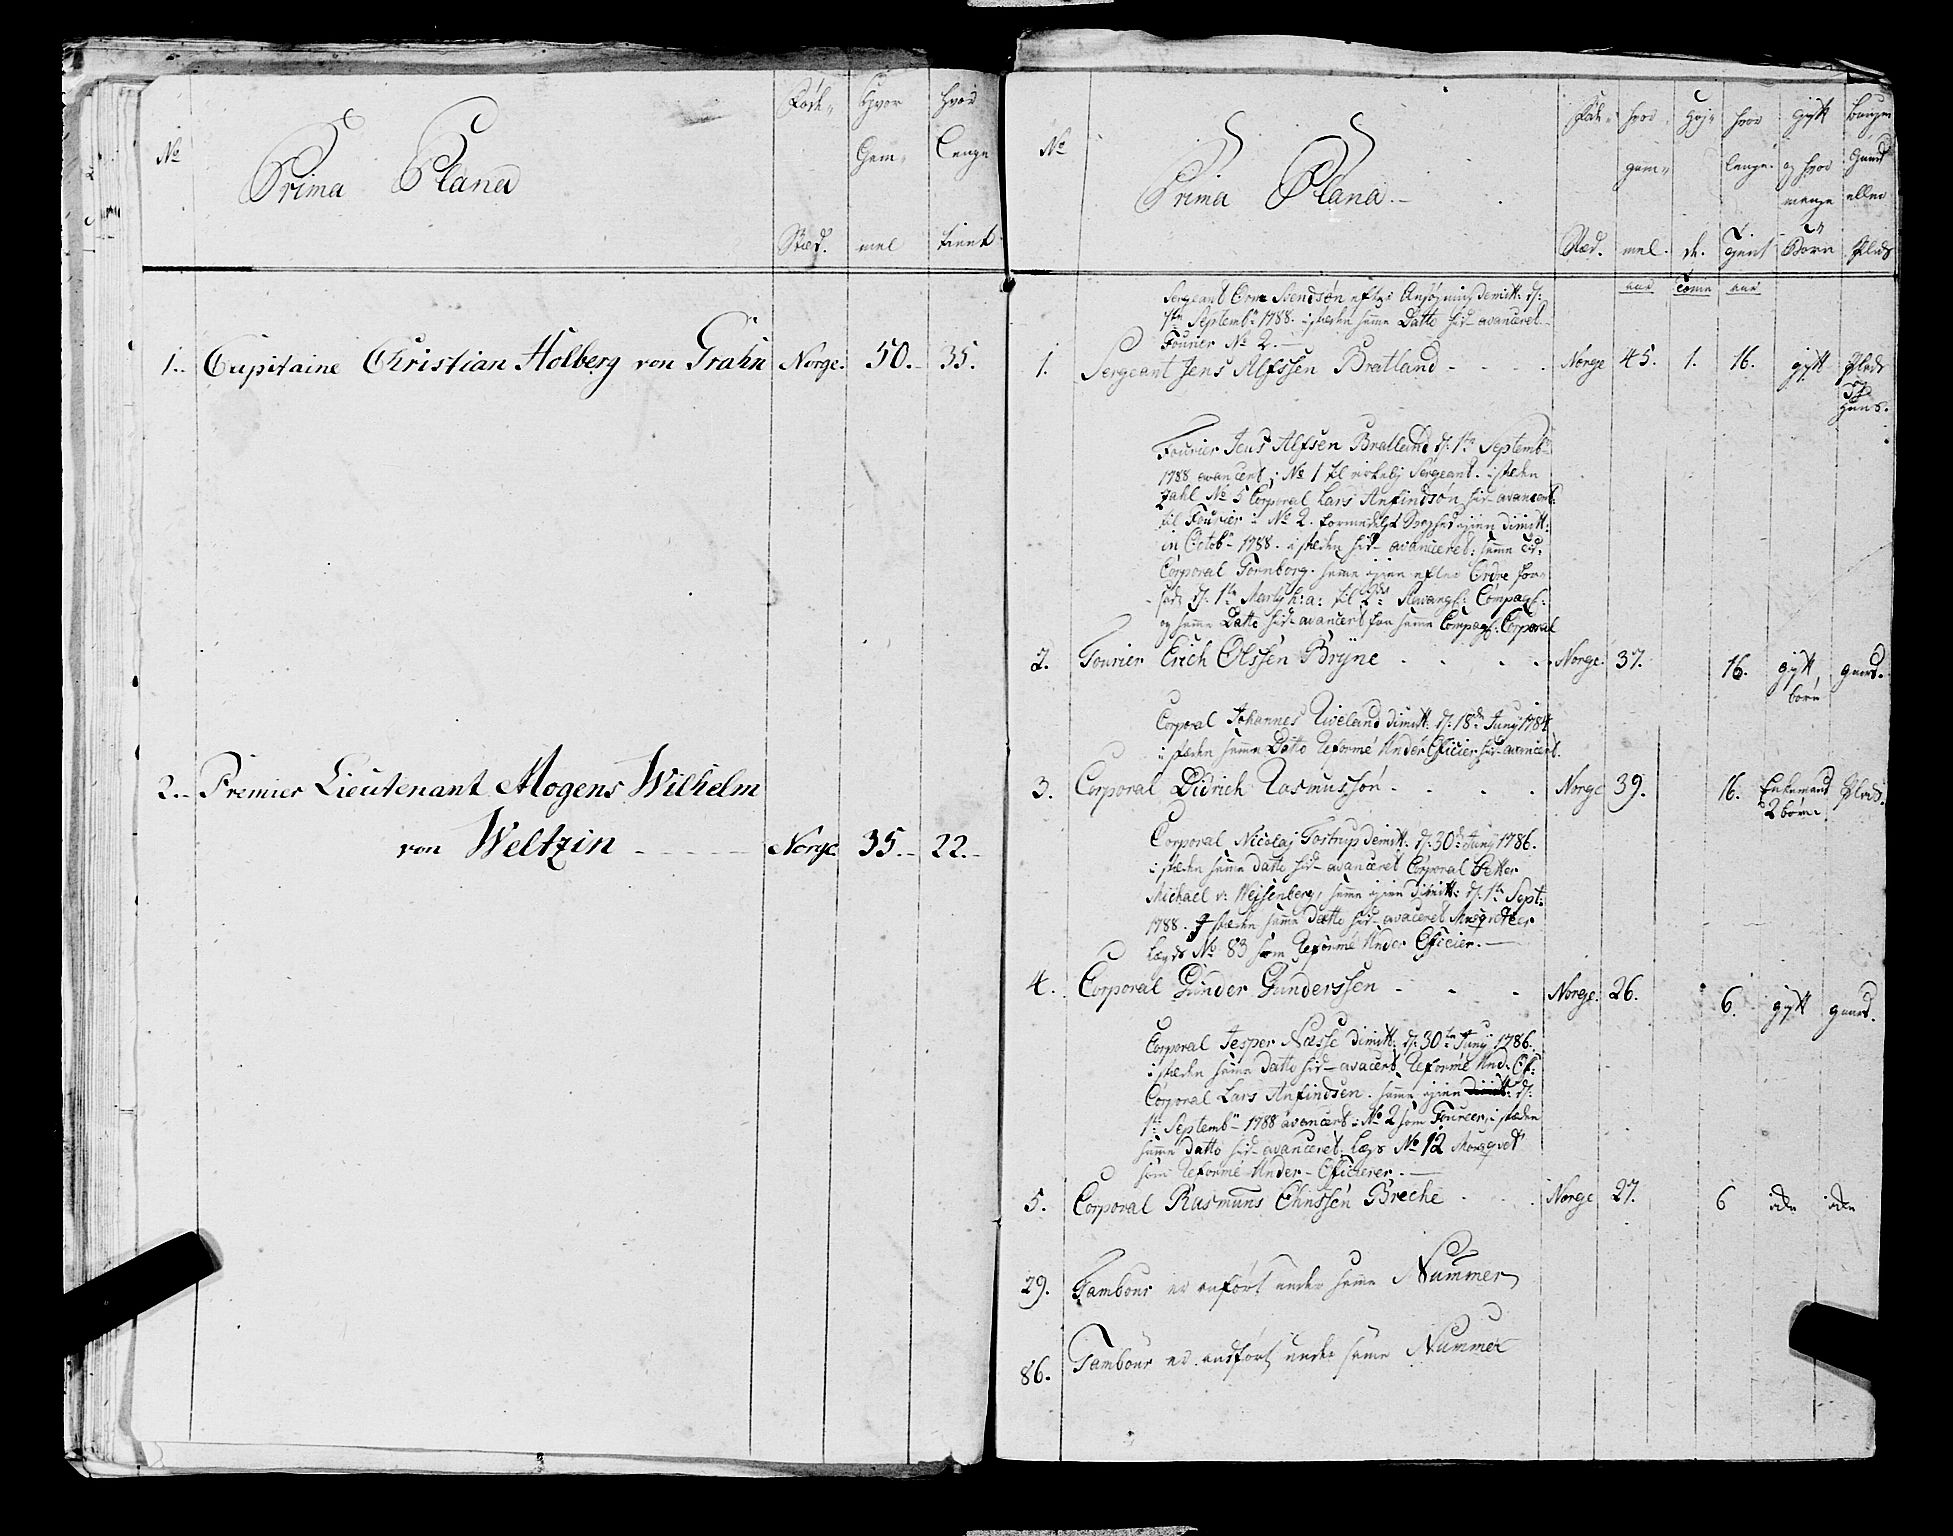 No
Prima Plana
Føde-
Stæd.
Hvor
Gam-
mel
hvor
lenge
tient
1. Capitaine Christian Holberg von Grahn Norge. 50. 35.
2. Premier Lieutenant Mogens Wilhelm
von Weltzin Norge 35. 22.
No
Prima Plana.
Føde-
Stæd.
hvor
gam-
mel.
aar
Høj-
de.
Tomm
hvor
lenge
tjent
aar
gift
og hvor
mange
Børn
Gaard
eller
Plads
Sergeant Orm Svendsøn efter Ansøgning demitt: d:
1ste Septembr 1788. i stæden samme Datto hid avanceret
Fourier No 2.
1. Sergeant Jens Alfssen Bratland Norge 45. 1. 16. gift Plads
og
Huus.
Fourier Jens Alfsen Bratland d. 1te Septembr
1788 avancert i No 1 til virkelig Sergeant. i stæden
No 5 Corporal Lars Anfindsøn hid avancert
til Fourier i No 2. formedelst Svaghed igien dimitt:
in Octobr 1788. i stæden hid avanceret: samme
Corporal Tornborg. samme igien efter Ordre
d. 1te Marty h: a: til 2de Compag:
og samme Datto hid avancert fra samme Compag: Corporal
2. Fourier Erich Olssen Bryne Norge. 37. 16. gift gaard.
børn
Corporal Johannes dimitt: d. 18de Juny 1784
i stæden samme Datto Reformé Under Officier hid avancert.
3. Corporal Didrich Rasmussøn Norge 39. 16. Enkemand Plads.
2 børn
Corporal Nicolaj Tostrup demitt: d. 30de Juny 1786.
i stæden samme Datto hid avanceret Corporal Petter
Michael v: Weissenberg, samme igien dimitt: d. 1te Sept:
1788. I stæden samme Datto hid avaceret Musqveteer
Lægds No 83 som Reformé Under Officier.
4. Corporal Gunder Gunderssen Norge. 26. 6. gift gaard.
Corporal Jesper Næsse dimitt: d. 30te Juny 1786.
i stæden samme Datto hid avacert Reformé Und. Of:
Corporal Lars Anfindsen. samme igien dimitt: d:
1te Septembr 1788 avancert i No 2 som Foureer, i stæden
samme Datto hid avanceret. Lægs No 12 Musqvet
som Reformé Under Officierer.
5. Corporal Rasmuns Ohnssen Breche Norge 27. 6 iden iden
29. Tambour er anført under samme Nummer
86. Tambour er andført under samme Nummer